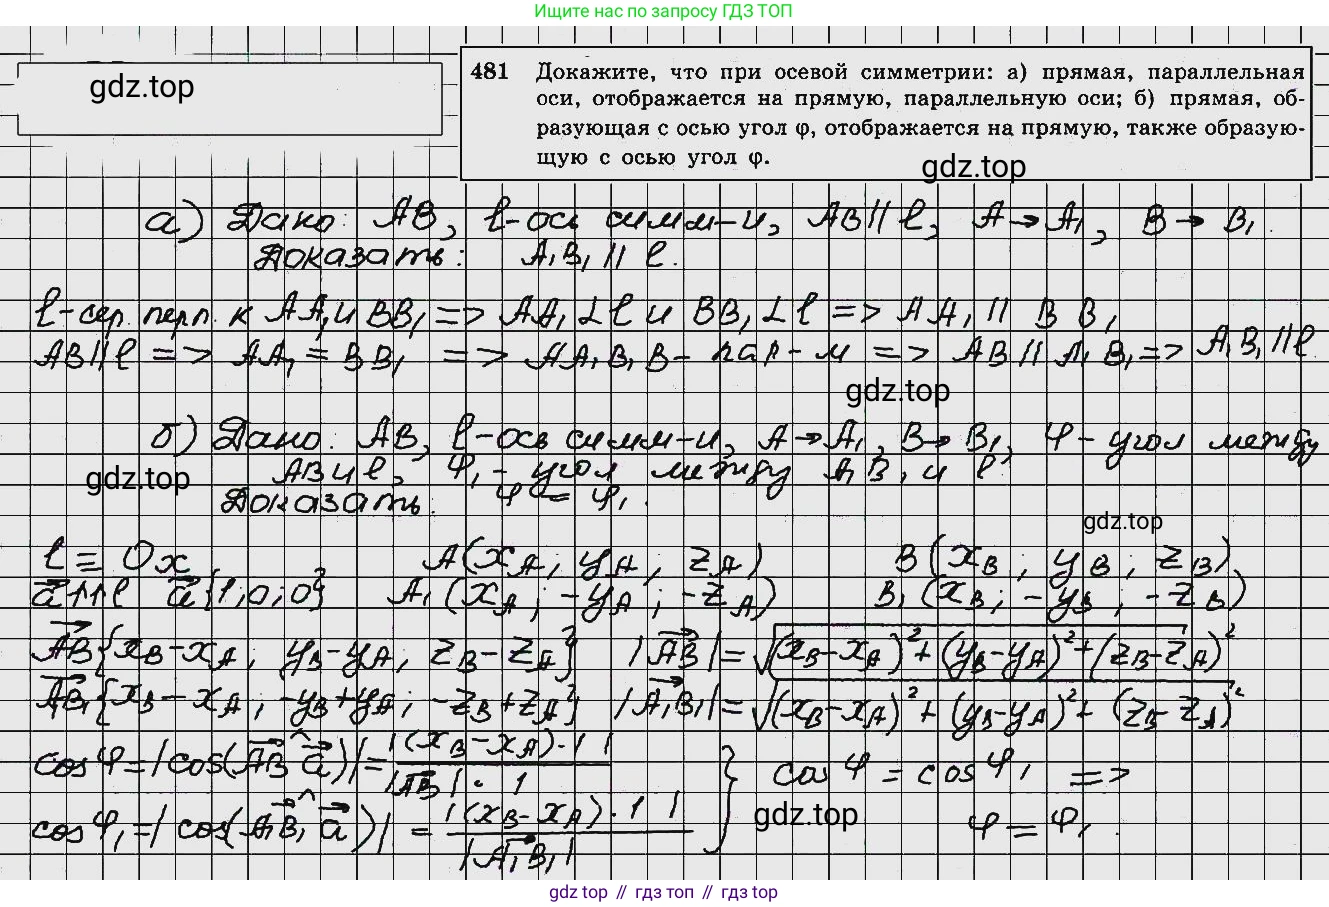 Ищите нас по запросу ГДЗ ТОП
gdz.top
481 Докажите, что при осевой симметрии: а) прямая, параллельная
оси, отображается на прямую, параллельную оси; б) прямая, об-
разующая с осью угол φ, отображается на прямую, также образую-
щую с осью угол φ.
gdz.top
а) Дано: AB, l-ось симм-и, AB∥l, A→A₁, B→B₁.
Доказать: A₁B₁∥l.
l-сер. перп. к AA₁ и BB₁ => AA₁⊥l и BB₁⊥l => AA₁∥BB₁
AB∥l => AA₁=BB₁ => AA₁B₁B – пар-м => AB∥A₁B₁ => A₁B₁∥l
gdz.top
б) Дано: AB, l-ось симм-и, A→A₁, B→B₁, φ-угол между
AB и l, φ₁-угол между A₁B₁ и l
gdz.top
Доказать: φ=φ₁.
gdz.top
l≡Ox A(x_A; y_A; z_A) B(x_B; y_B; z_B)
a⃗↑↑l a⃗{1;0;0} A₁(x_A; -y_A; -z_A) B₁(x_B; -y_B; -z_B)
AB⃗{x_B-x_A; y_B-y_A; z_B-z_A} |AB⃗|=√((x_B-x_A)²+(y_B-y_A)²+(z_B-z_A)²)
A₁B₁⃗{x_B-x_A; -y_B+y_A; -z_B+z_A} |A₁B₁⃗|=√((x_B-x_A)²+(y_B-y_A)²+(z_B-z_A)²)
cosφ=|cos(AB⃗^a⃗)|=|(x_B-x_A)·1|/(|AB⃗|·1) } cosφ=cosφ₁ =>
cosφ₁=|cos(A₁B₁⃗^a⃗)|=|(x_B-x_A)·1|/|A₁B₁⃗| φ=φ₁.
gdz.top
gdz top // гдз топ // гдз top